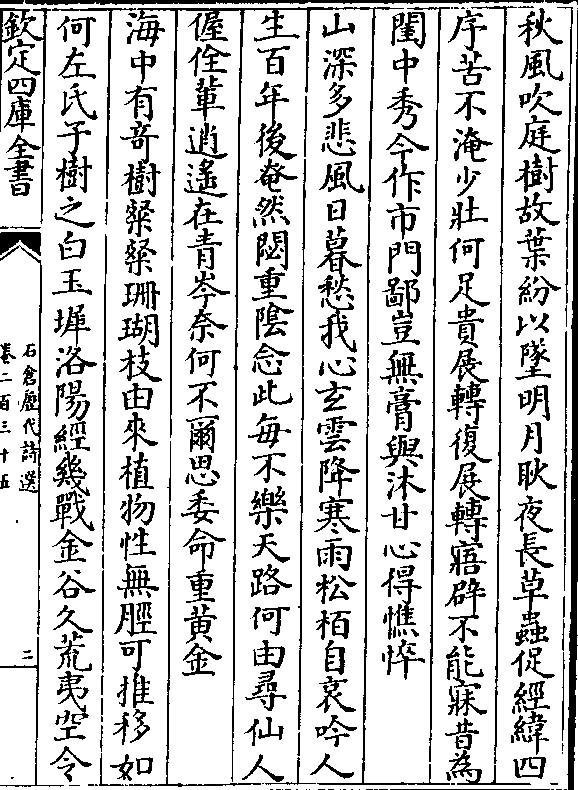 秋風吹庭樹故葉紛以墜明月耿夜長草蟲促經緯四
序苦不淹少壯何足貴展轉復展轉寤辟不能寐昔為
閨中秀今作市門鄙豈無膏與沐甘心得憔悴
山深多悲風日暮愁我心玄雲降寒雨松栢自哀吟人
生百年後奄然閟重陰念此每不樂天路何由尋仙人
偓佺輩逍遙在青岑奈何不爾思委命重黃金
海中有奇樹粲粲珊瑚枝由來植物性無脛可推移如
何左氏子樹之白玉墀洛陽經幾戰金谷久荒夷空令
欽定四庫全書
石倉歷代詩選
卷二百三十五
二